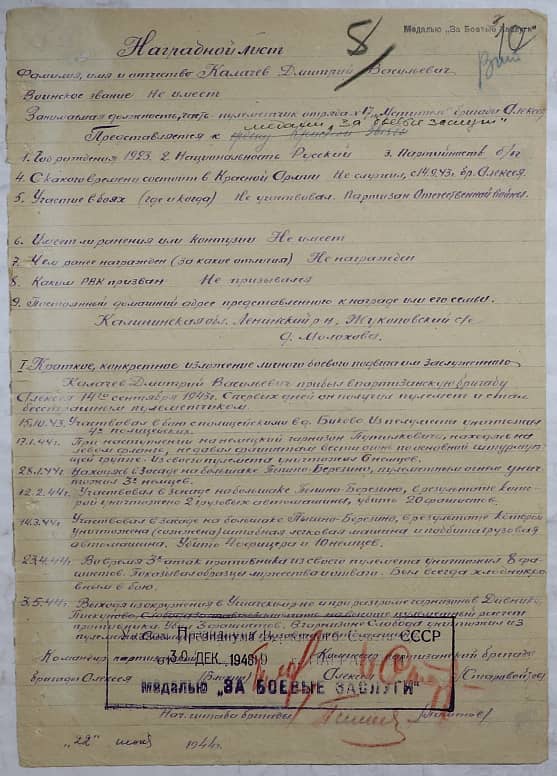 Медалью „За Боевые Заслуги"
Наградной лист
8/
Фамилия, имя и отчество Калачев Дмитрий Васильевич
Воинское звание Не имеет
Занимаемая должность, часть пулеметчик отряда №17 „Мститель" бригады Алексея
медали „за боевые заслуги"
Представляется к ордену
1. Год рождения 1923. 2. Национальность Русский 3. Партийность б/п
4. С какого времени состоит в Красной Армии Не служил, с 14.9.43. бр. Алексея.
5. Участие в боях (где и когда) Не участвовал. Партизан Отечественной Войны.
6. Имеет ли ранения или контузии Не имеет
7. Чем ранее награжден (за какие отличия) Не награжден
8. Каким РВК призван Не призывался
9. Постоянный домашний адрес представленного к награде или его семьи.
Калининская обл. Ленинский р-н, Жукоповский с/с
д. Молохова.
I. Краткое, конкретное изложение личного боевого подвига или Заслуг
Калачев Дмитрий Васильевич прибыл в партизанскую бригаду
Алексея 14го сентября 1943г. С первых дней он получил пулемет и стал
бесстрашным пулеметчиком.
15.10.43. Участвовал в бою с полицейскими в д. Биково. Из пулемета уничтожил
полицейских.
17.1.44г. При наступлении на немецкий гарнизон находясь на
левом фланге, не давал фашистам вести огонь по основной штурмую-
щей группе. Из своего пулемета уничтожил 6 немцев.
28.1.44г. Находясь в засаде на большаке Березино, пулеметным огнем унич-
тожил 3х немцев.
12.2.44г. Участвовал в засаде на большаке Березино, в результате кото-
рой уничтожено 2 грузовых автомашины, убито 20 фашистов.
14.3.44г. Участвовал в засаде на большаке Березино, в результате которой
уничтожена (сожжена) штабная легковая машина и подбита грузовая
автомашина. Убито офицера и 10 немцев.
23.4.44г. Во время 3х атак противника из своего пулемета уничтожил 8 фа-
шистов. Показывал образцы мужества и отваги. Был всегда хладнокро-
вным в бою.
3.5.44г. Выходя из окружения в и при разгроме гарнизонов
противника. Убил 3 фашистов. В гарнизоне Слобода уничтожил из
пулемета
Указом Президиума Верховного Совета СССР
от 30 ДЕК. 1948
НАГРАЖДЕН
Медалью "ЗА БОЕВЫЕ ЗАСЛУГИ"
Командир партизанской
бригады Алексея
Комиссар партизанской бригады
Алексея
Нач. штаба бригады
„22" 1944г.